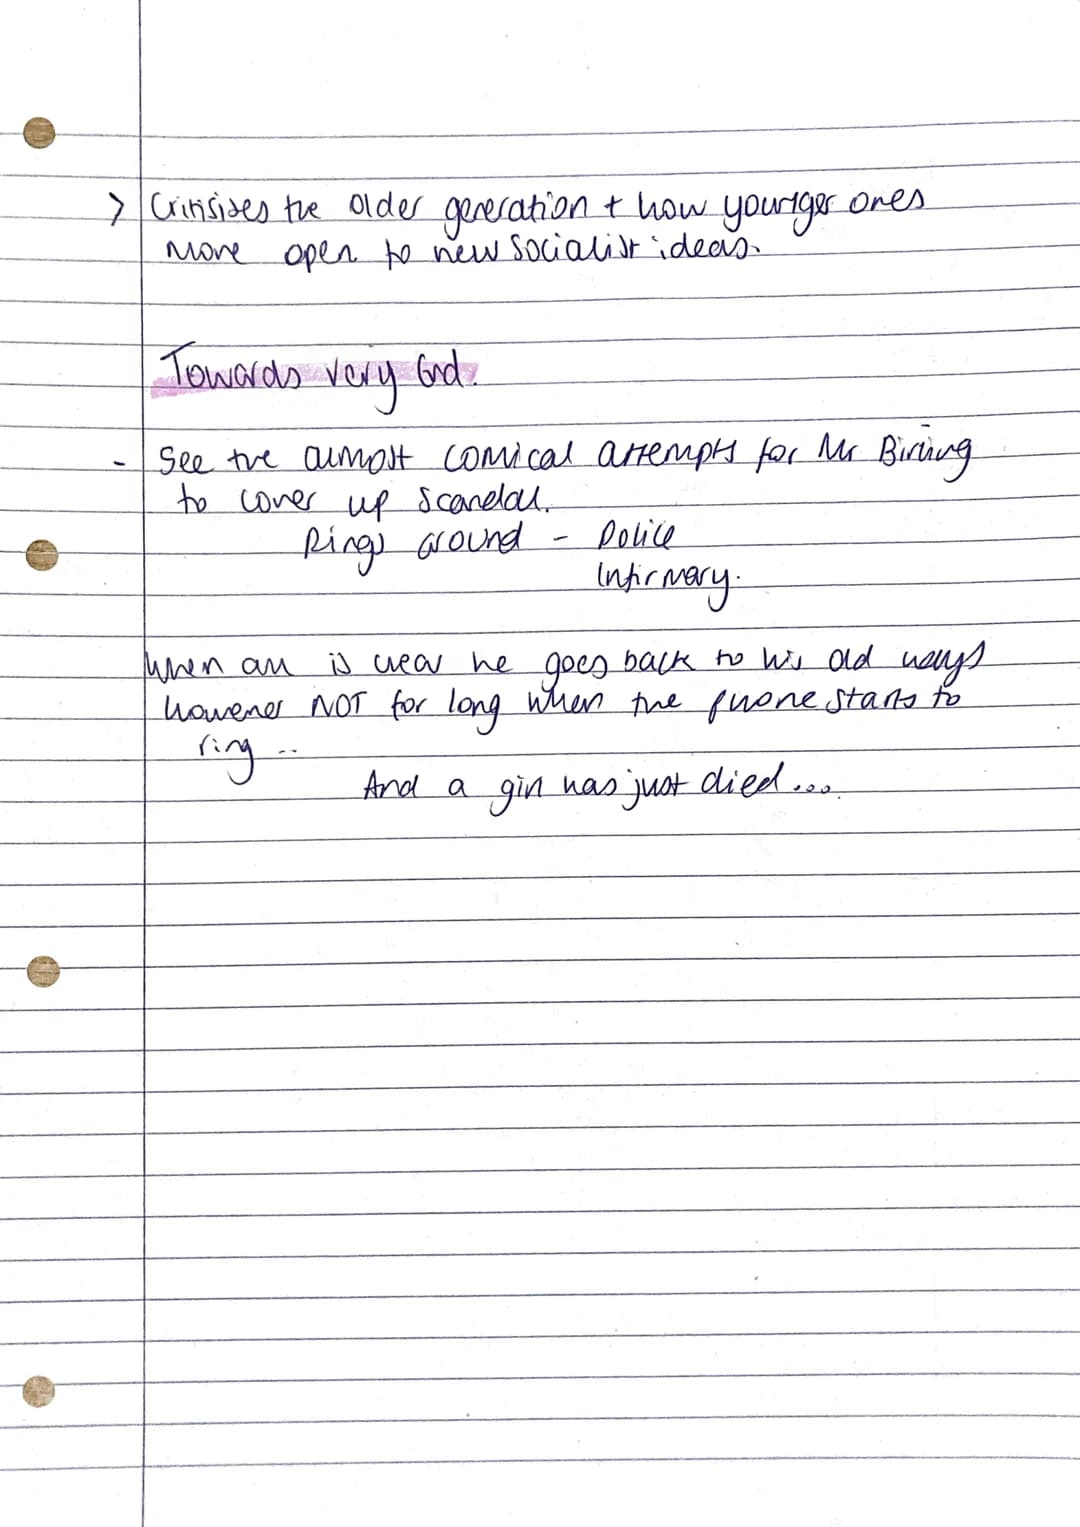 > Critisises the older generation + how younger ones
more open to new Socialist ideas.
Towards very End.
- See the almost comical attempts for Mr Birling
to cover up scandal.
Rings around - Police
Infirmary.
When all is clear he goes back to his old ways
however NOT for long when the phone starts to
ring ..
And a girl has just died ....